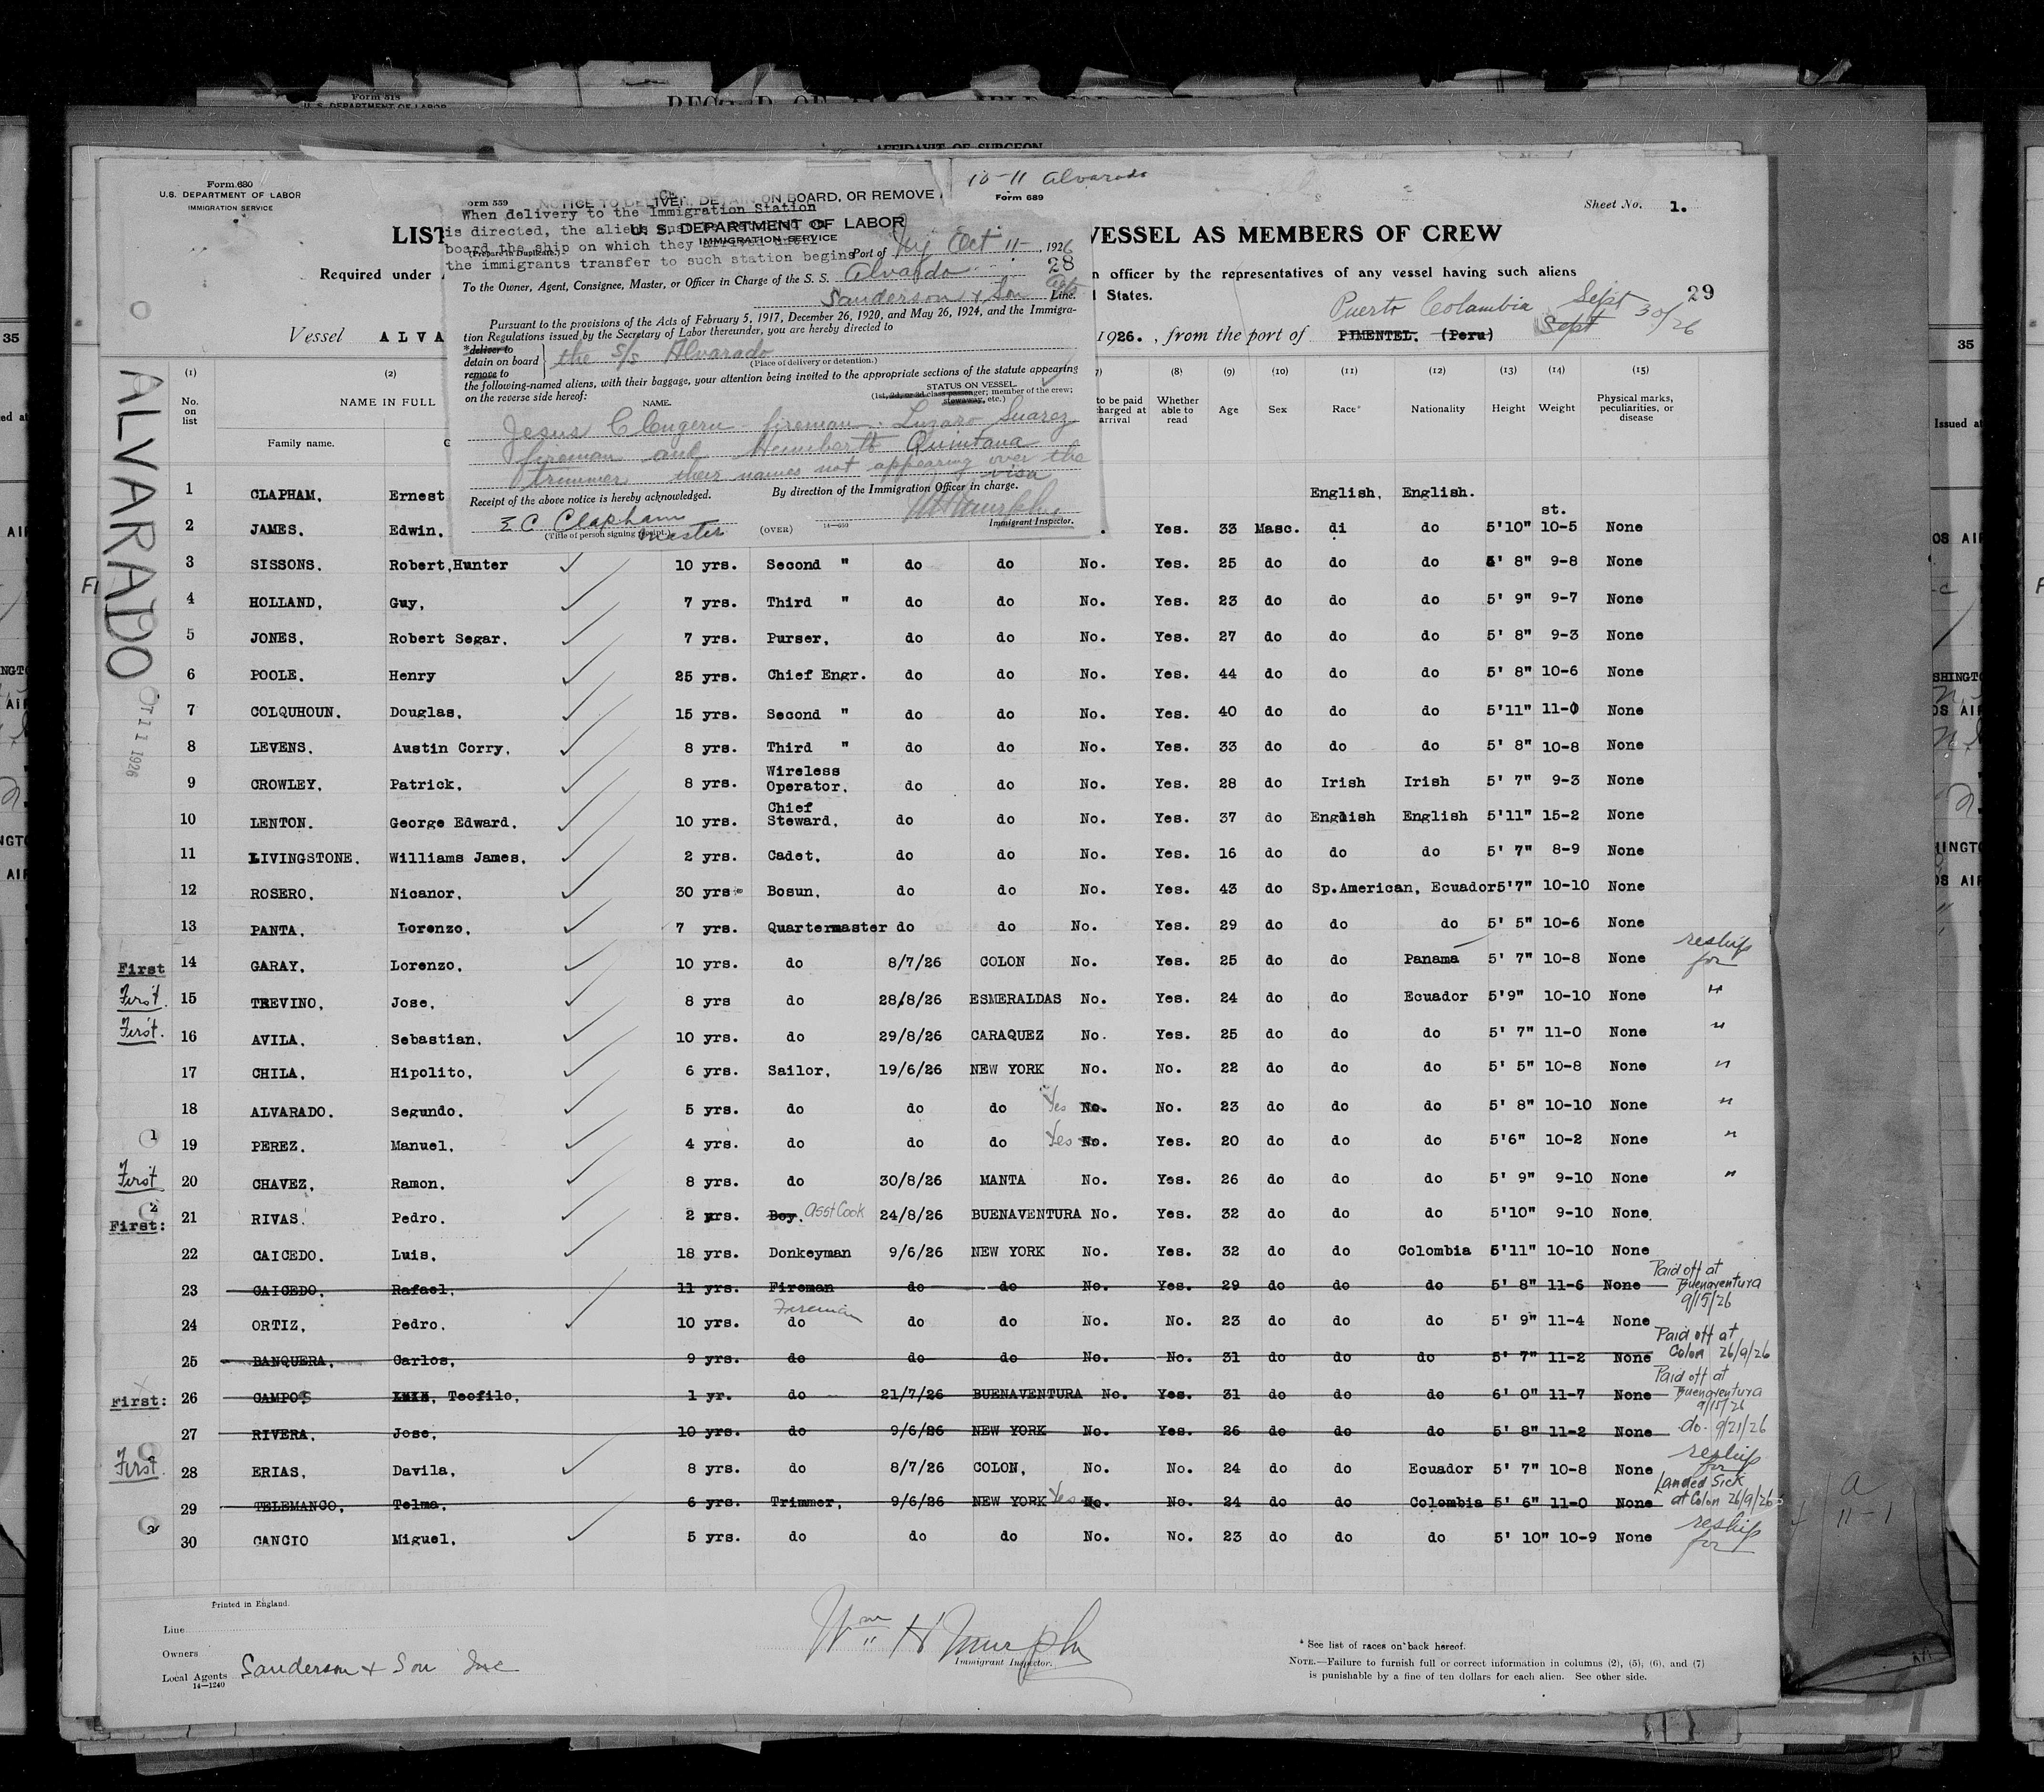 Form 518
U. S. DEPARTMENT OF LABOR
AFFIDAVIT OF SURGEON
Form 680
U.S. DEPARTMENT OF LABOR
IMMIGRATION SERVICE
10-11 Alvarado
Form 689
Sheet No. 1.
LIST
VESSEL AS MEMBERS OF CREW
Required under
n officer by the representatives of any vessel having such aliens
States.
29
Vessel ALVA
1926. , from the port of PIMENTEL. (Peru)
Puerto Colombia Sept 30/26
Sept
Form 559
NOTICE TO DELIVER, DETAIN ON BOARD, OR REMOVE
When delivery to the Immigration Station
is directed, the aliens
board the ship on which they
the immigrants transfer to such station begins
U. S. DEPARTMENT OF LABOR
IMMIGRATION SERVICE
(Prepare in Duplicate.)
Port of Ny Oct 11-, 1926
28
To the Owner, Agent, Consignee, Master, or Officer in Charge of the S. S. Alvarado
Sanderson & Son Agts Line.
Pursuant to the provisions of the Acts of February 5, 1917, December 26, 1920, and May 26, 1924, and the Immigra-
tion Regulations issued by the Secretary of Labor thereunder, you are hereby directed to
*deliver to
detain on board
remove to
the S/S Alvarado
(Place of delivery or detention.)
the following-named aliens, with their baggage, your attention being invited to the appropriate sections of the statute appearing
on the reverse side hereof:
NAME.
STATUS ON VESSEL
(1st, 2d, or 3d class passenger; member of the crew; stowaway, etc.)
Jesus fireman. Suarez
fireman and Quintana
trimmer their names not appearing over the
visa
Receipt of the above notice is hereby acknowledged.
By direction of the Immigration Officer in charge.
E C Clapham
master
(Title of person signing receipt.)
(OVER)
Immigrant Inspector.
ALVARADO
T 11 1926
(1) (2) (8) (9) (10) (11) (12) (13) (14) (15)
No. on list
NAME IN FULL
Family name.
to be paid
charged at
arrival
Whether able to read
Age Sex Race* Nationality Height Weight
Physical marks, peculiarities, or disease
1 CLAPHAM. Ernest English. English.
st.
2 JAMES. Edwin. Yes. 33 Masc. di do 5'10" 10-5 None
3 SISSONS. Robert.Hunter 10 yrs. Second " do do No. Yes. 25 do do do 5' 8" 9-8 None
4 HOLLAND. Guy. 7 yrs. Third " do do No. Yes. 23 do do do 5' 9" 9-7 None
5 JONES. Robert Segar. 7 yrs. Purser. do do No. Yes. 27 do do do 5' 8" 9-3 None
6 POOLE. Henry 25 yrs. Chief Engr. do do No. Yes. 44 do do do 5' 8" 10-6 None
7 COLQUHOUN. Douglas. 15 yrs. Second " do do No. Yes. 40 do do do 5'11" 11-0 None
8 LEVENS. Austin Corry. 8 yrs. Third " do do No. Yes. 33 do do do 5' 8" 10-8 None
9 CROWLEY. Patrick. 8 yrs. Wireless Operator. do do No. Yes. 28 do Irish Irish 5' 7" 9-3 None
10 LENTON. George Edward. 10 yrs. Chief Steward. do do No. Yes. 37 do English English 5'11" 15-2 None
11 LIVINGSTONE. Williams James. 2 yrs. Cadet. do do No. Yes. 16 do do do 5' 7" 8-9 None
12 ROSERO. Nicanor. 30 yrs Bosun. do do No. Yes. 43 do Sp.American. Ecuador 5'7" 10-10 None
13 PANTA. Lorenzo. 7 yrs. Quartermaster do do No. Yes. 29 do do do 5' 5" 10-6 None
First 14 GARAY. Lorenzo. 10 yrs. do 8/7/26 COLON No. Yes. 25 do do Panama 5' 7" 10-8 None reship for
First. 15 TREVINO. Jose. 8 yrs do 28/8/26 ESMERALDAS No. Yes. 24 do do Ecuador 5'9" 10-10 None "
First. 16 AVILA. Sebastian. 10 yrs. do 29/8/26 CARAQUEZ No. Yes. 25 do do do 5' 7" 11-0 None "
17 CHILA. Hipolito. 6 yrs. Sailor. 19/6/26 NEW YORK No. No. 22 do do do 5' 5" 10-8 None "
18 ALVARADO. Segundo. 5 yrs. do do do Yes No. No. 23 do do do 5' 8" 10-10 None "
1 19 PEREZ. Manuel. 4 yrs. do do do Yes No. Yes. 20 do do do 5'6" 10-2 None "
First 20 CHAVEZ. Ramon. 8 yrs. do 30/8/26 MANTA No. Yes. 26 do do do 5' 9" 9-10 None "
First: 21 RIVAS. Pedro. 2 yrs. Boy. Asst Cook 24/8/26 BUENAVENTURA No. Yes. 32 do do do 5'10" 9-10 None.
22 CAICEDO. Luis. 18 yrs. Donkeyman 9/6/26 NEW YORK No. Yes. 32 do do Colombia 5'11" 10-10 None
23 CAICEDO. Rafael. 11 yrs. Fireman do do No. Yes. 29 do do do 5' 8" 11-6 None Paid off at Buenaventura 9/15/26
24 ORTIZ. Pedro. 10 yrs. Fireman do do do No. No. 23 do do do 5' 9" 11-4 None
25 BANQUERA. Carlos. 9 yrs. do do do No. No. 31 do do do 5' 7" 11-2 None Paid off at Colon 26/9/26
First: 26 CAMPOS Teofilo. 1 yr. do 21/7/26 BUENAVENTURA No. Yes. 31 do do do 6' 0" 11-7 None Paid off at Buenaventura 9/15/26
27 RIVERA. Jose. 10 yrs. do 9/6/26 NEW YORK No. Yes. 26 do do do 5' 8" 11-2 None do. 9/21/26
First. 28 ERIAS. Davila. 8 yrs. do 8/7/26 COLON. No. No. 24 do do Ecuador 5' 7" 10-8 None reship for
29 TELEMANCO. Telma. 6 yrs. Trimmer. 9/6/26 NEW YORK Yes No. No. 24 do do Colombia 5' 6" 11-0 None Landed Sick at Colon 26/9/26
30 CANCIO Miguel. 5 yrs. do do do No. No. 23 do do do 5' 10" 10-9 None reship for
Printed in England.
Line
Owners
Local Agents Sanderson & Son Inc
14—1240
Wm H Murphy
Immigrant Inspector.
* See list of races on back hereof.
NOTE.—Failure to furnish full or correct information in columns (2), (5), (6), and (7)
is punishable by a fine of ten dollars for each alien. See other side.